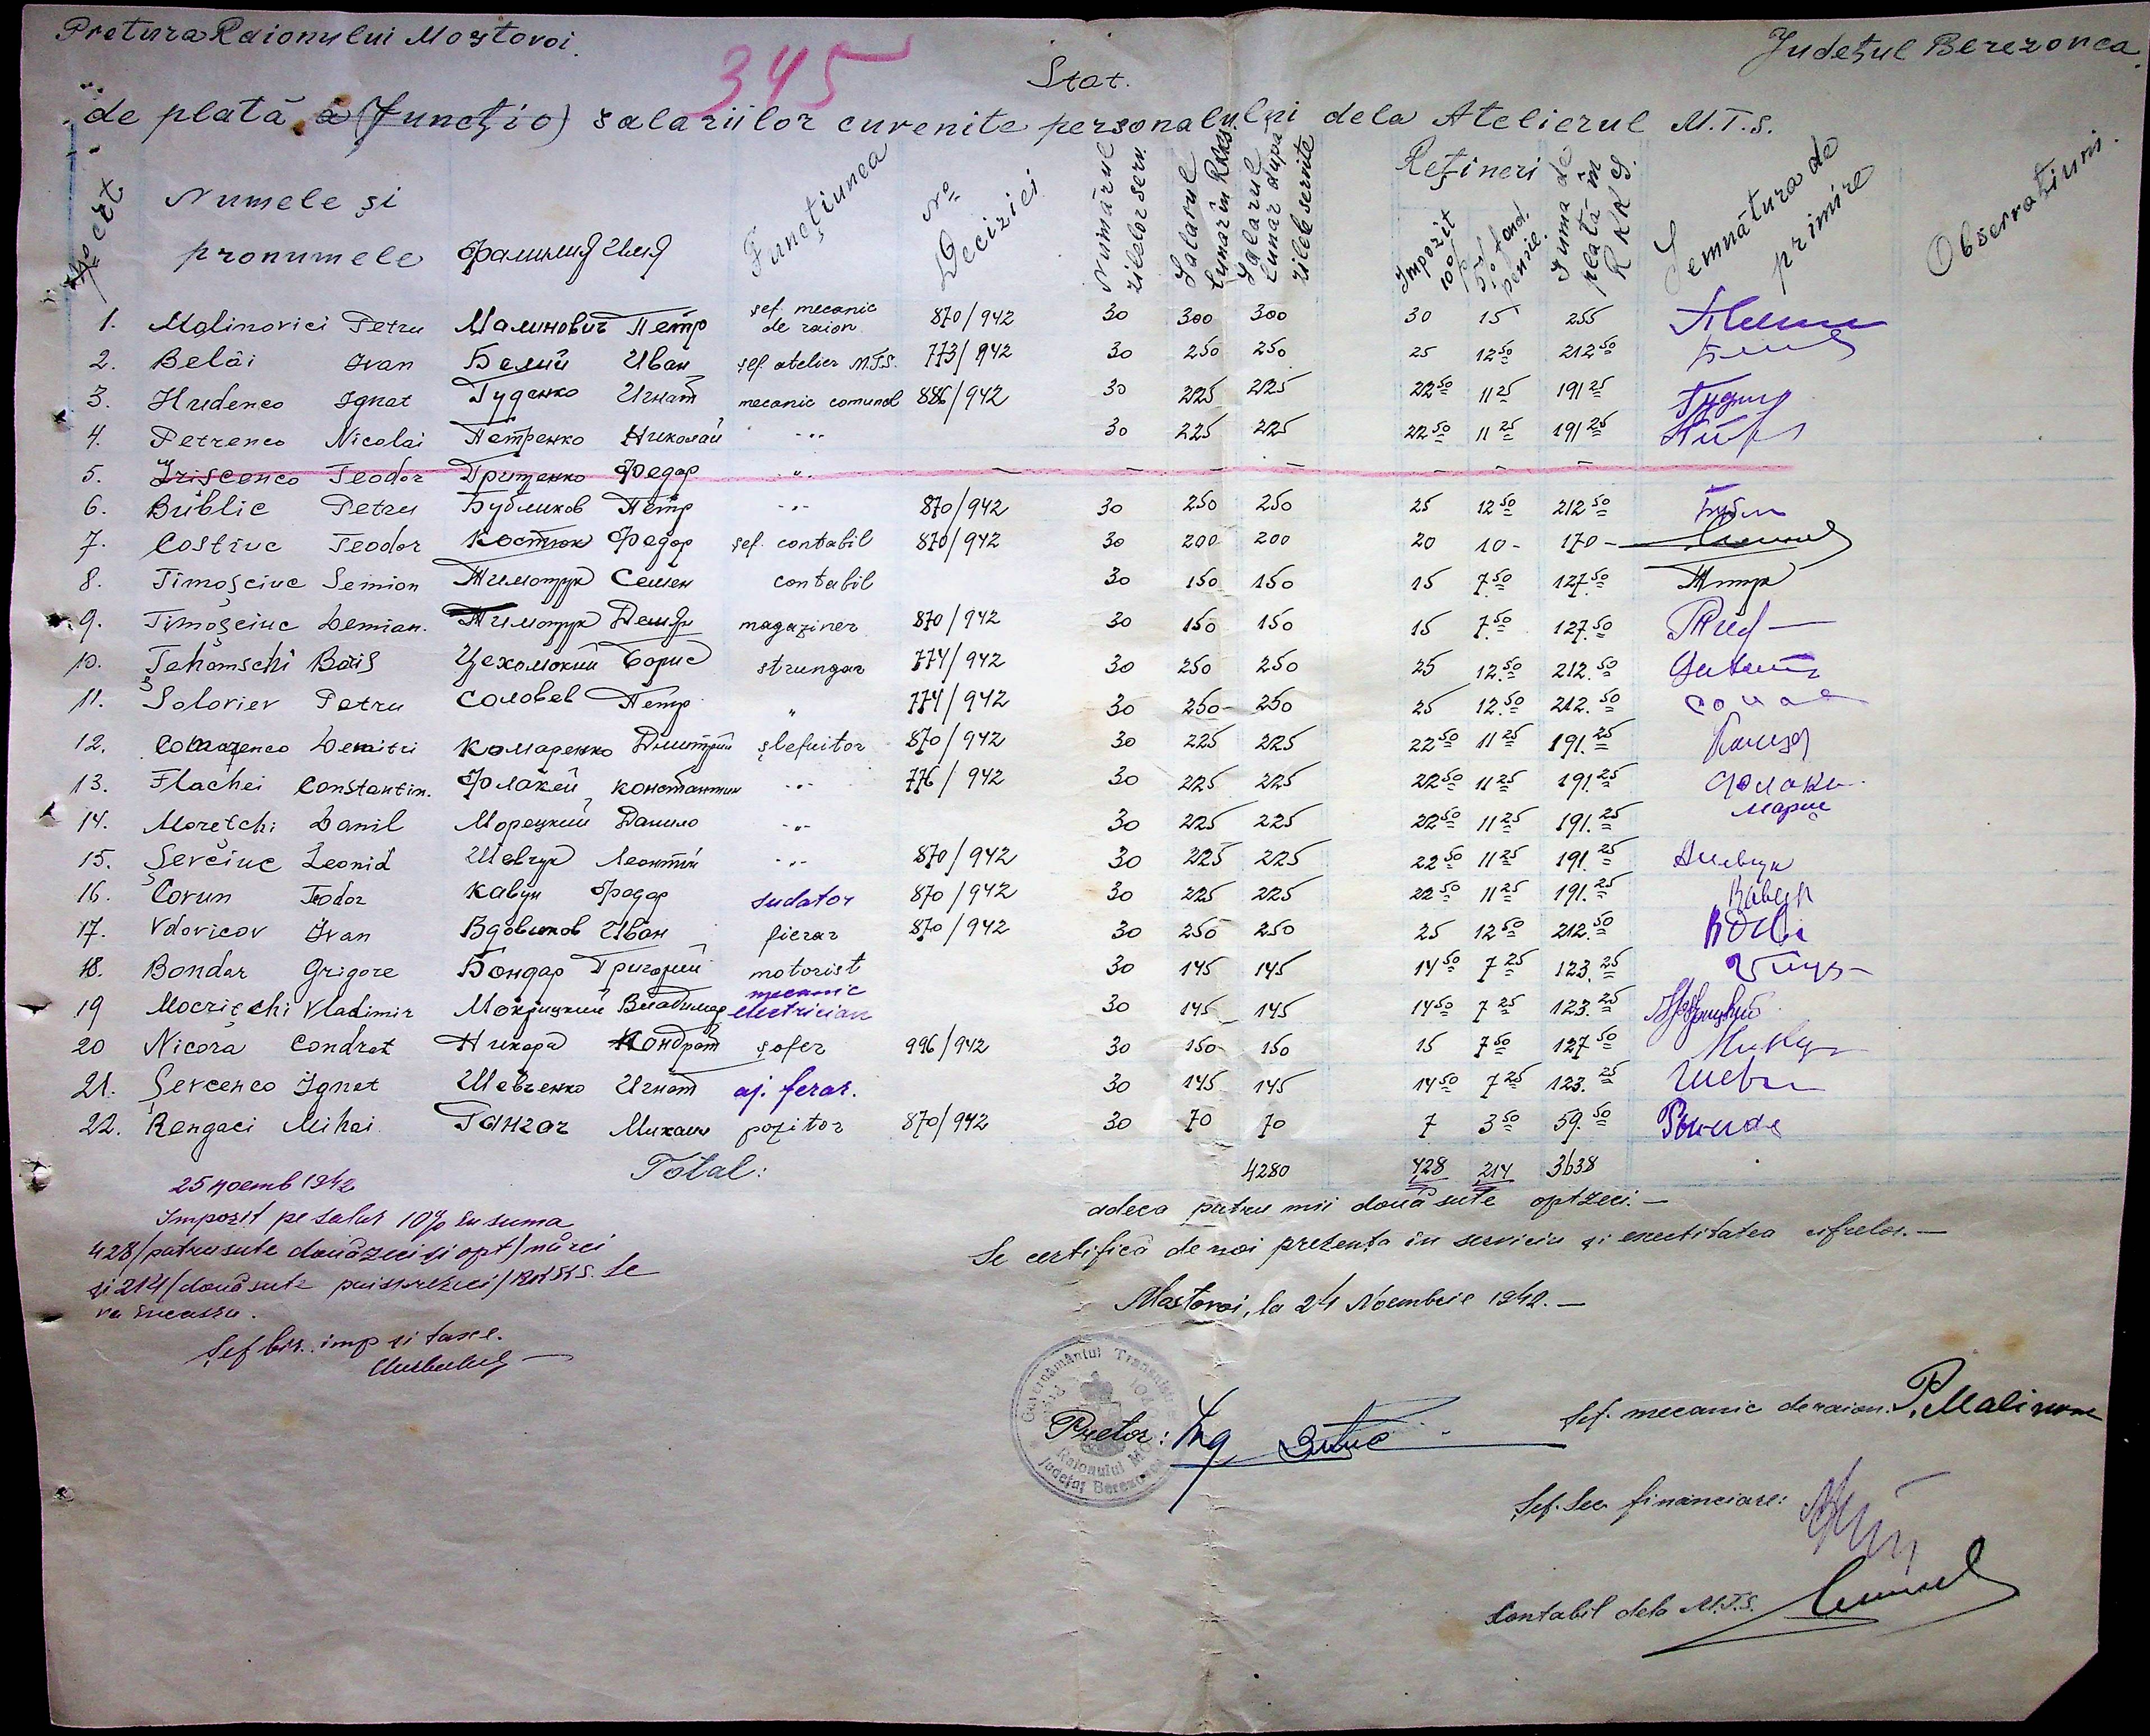 Pretura Raionului Mostovoi.
Județul Berezovca.
345
Stat.
de plată a (funcțio) salariilor cuvenite personalului dela Atelierul M.T.S.
№ crt
Numele și pronumele
Фамилия Имя
Funcțiunea
№ Deciziei
Numărul zilelor serv.
Salarul lunar în RKKS.
Salarul lunar după zilele servite
Rețineri
Impozit 10%
5% fond. pensie.
Suma de plată în RKKS.
Semnătura de primire
Observațiuni.
1. Malinovici Petru Малинович Петр șef. mecanic de raion 870/942 30 300 300 30 15 255
2. Belâi Ivan Белый Иван șef. atelier M.T.S. 773/942 30 250 250 25 12 50 212 50
3. Hudenco Ignat Гуденко Игнат mecanic comunal 886/942 30 225 225 22 50 11 25 191 25
4. Petrenco Nicolai Петренко Николай -"- 30 225 225 22 50 11 25 191 25
5. Grișcenco Teodor Грищенко Федор -"- – – – – – – –
6. Bublic Petru Бубликов Петр -"- 870/942 30 250 250 25 12 50 212 50
7. Costiuc Teodor Костюк Федор șef. contabil 870/942 30 200 200 20 10- 170-
8. Timoșciuc Semion Тимощук Семен contabil 30 150 150 15 7 50 127 50
9. Timoșciuc Demian. Тимощук Демян magaziner 870/942 30 150 150 15 7 50 127 50
10. Țehomschi Boris Цехомский Борис strungar 774/942 30 250 250 25 12 50 212 50
11. Soloviev Petru Соловев Петр " 774/942 30 250 250 25 12 50 212 50
12. Comarenco Demitri Комаренко Дмитрий șlefuitor 870/942 30 225 225 22 50 11 25 191 25
13. Flachei Constantin. Флакей Константин -"- 776/942 30 225 225 22 50 11 25 191 25
14. Morețchi Danil Морецкий Данило -"- 30 225 225 22 50 11 25 191 25
15. Șevciuc Leonid Шевчук Леонтий -"- 870/942 30 225 225 22 50 11 25 191 25
16. Covun Teodor Кавун Федор sudator 870/942 30 225 225 22 50 11 25 191 25
17. Vdovicov Ivan Вдовиков Иван fierar 870/942 30 250 250 25 12 50 212 50
18. Bondar Grigore Бондар Григорий motorist 30 145 145 14 50 7 25 123 25
19 Mocrițchi Vladimir Мокрицкий Владимир mecanic electrician 30 145 145 14 50 7 25 123 25
20 Nicora Condrat Никора Кондрат șofer 996/942 30 150 150 15 7 50 127 50
21. Șevcenco Ignat Шевченко Игнат aj. ferar. 30 145 145 14 50 7 25 123 25
22. Rengaci Mihai Рангач Михаил pozitor 870/942 30 70 70 7 3 50 59 50
Total: 4280 428 214 3638
adeca patru mii două sute optzeci.—
Se certifică de noi prezența în serviciu și exactitatea cifrelor.—
Mostovoi, la 24 Noembrie 1942.—
25 noemb 1942
Impozit pe salar 10% în suma
428/patrusute douăzeci și opt/mărci
și 214/două sute paisprezeci/RKKS. se
va încassa.
Șef bir. imp și taxe.
Guvernământul Transnistriei
Raionului
Județul Berezovca
Pretor: Ing
Șef. mecanic de raion. P. Malinovi
Șef. Sec financiare:
Contabil dela M.T.S.